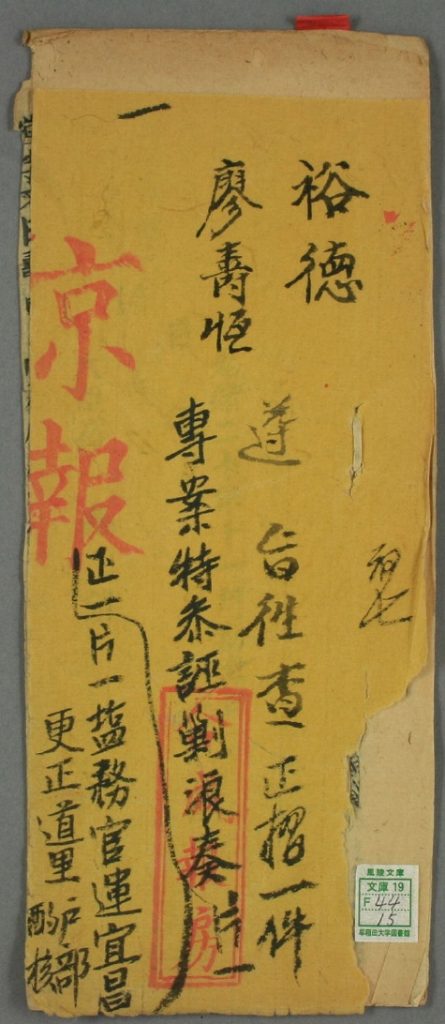 一
裕德
廖壽恆
遵 旨往查正摺一件
專案特参誣剿浪奏片一
正一片一塩務官運宜昌
更正道里
户部
酌核
京報
房
風陵文庫
文庫 19
F 44
15
早稲田大学図書館